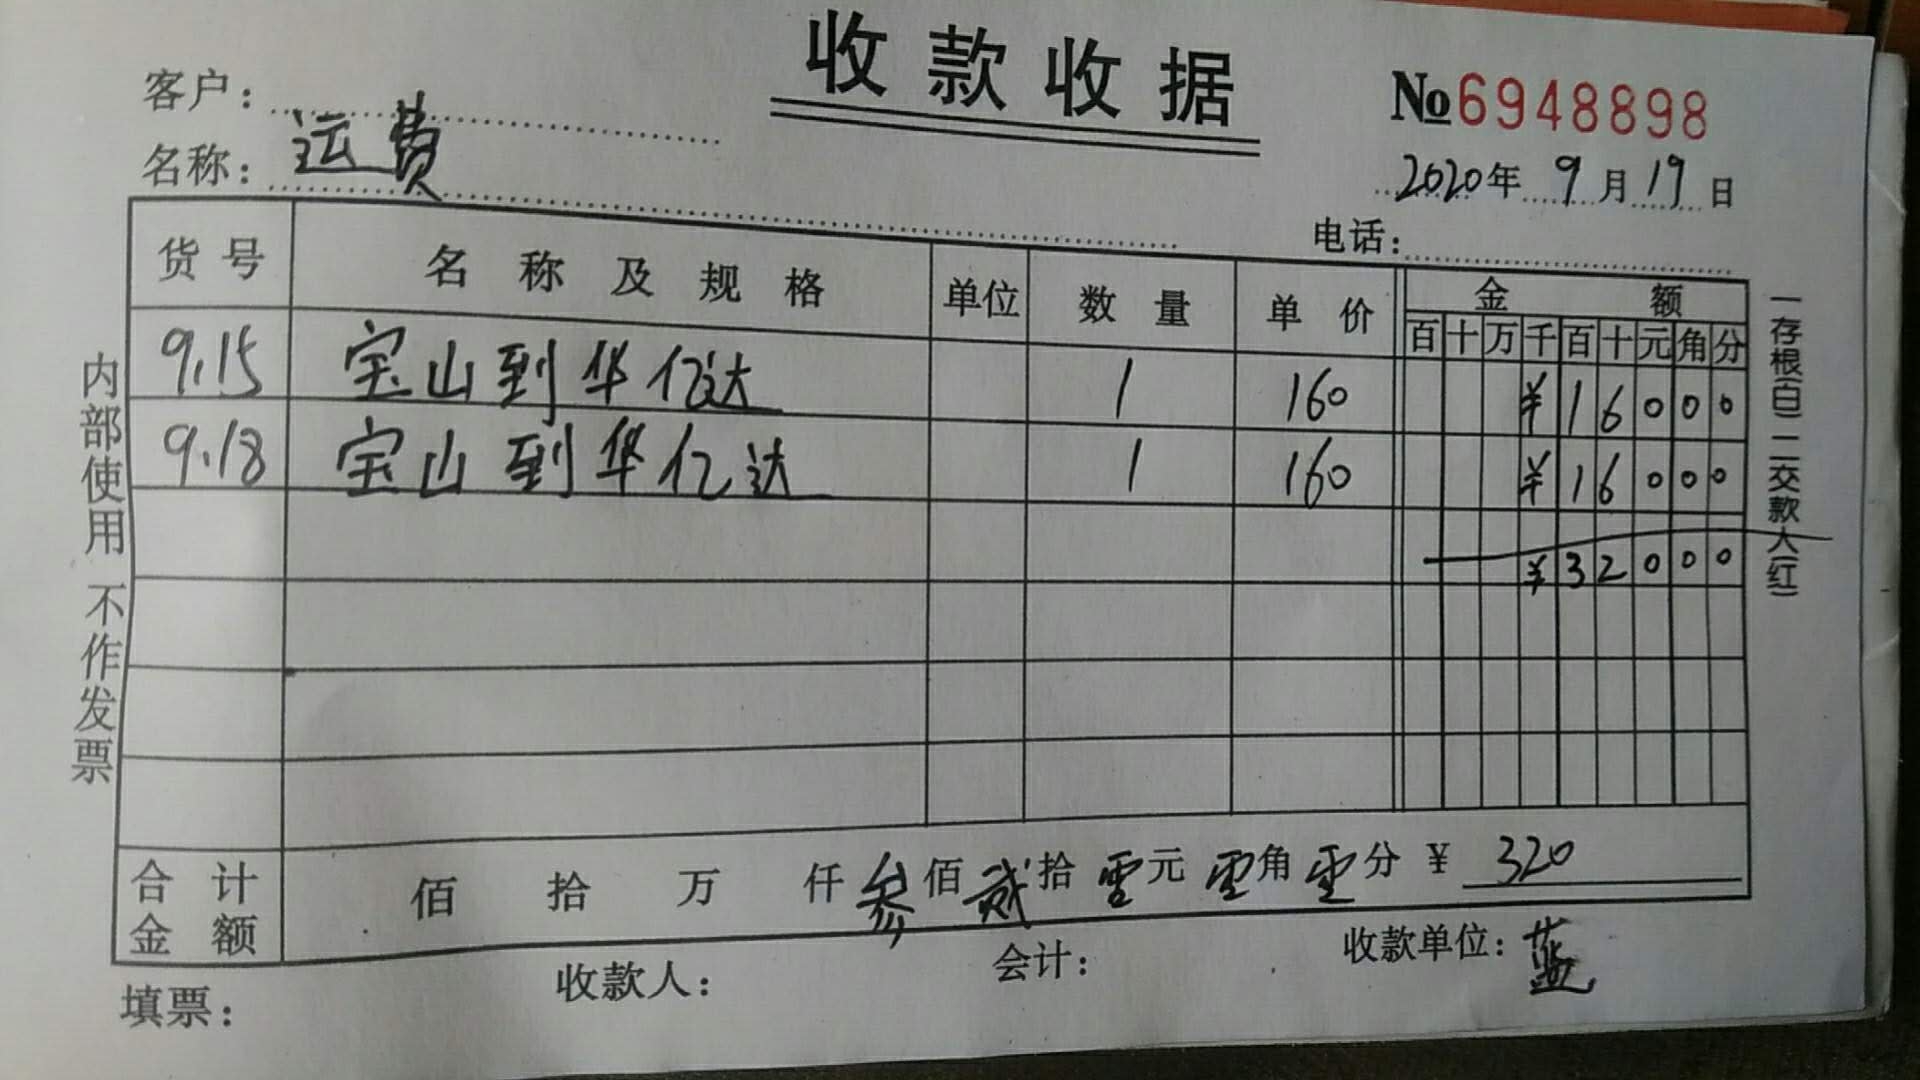 收款收据
客户：
№6948898
名称：运费
2020年9月19日
电话：
货号 名称及规格 单位 数量 单价 金额
百十万千百十元角分
9.15 宝山到华亿达 1 160 ¥16000
9.18 宝山到华亿达 1 160 ¥16000
¥32000
合计金额 佰 拾 万 仟叁佰贰拾零元零角零分 ¥320
填票： 收款人： 会计： 收款单位：蓝
内部使用 不作发票
一存根(白) 二交款人(红)